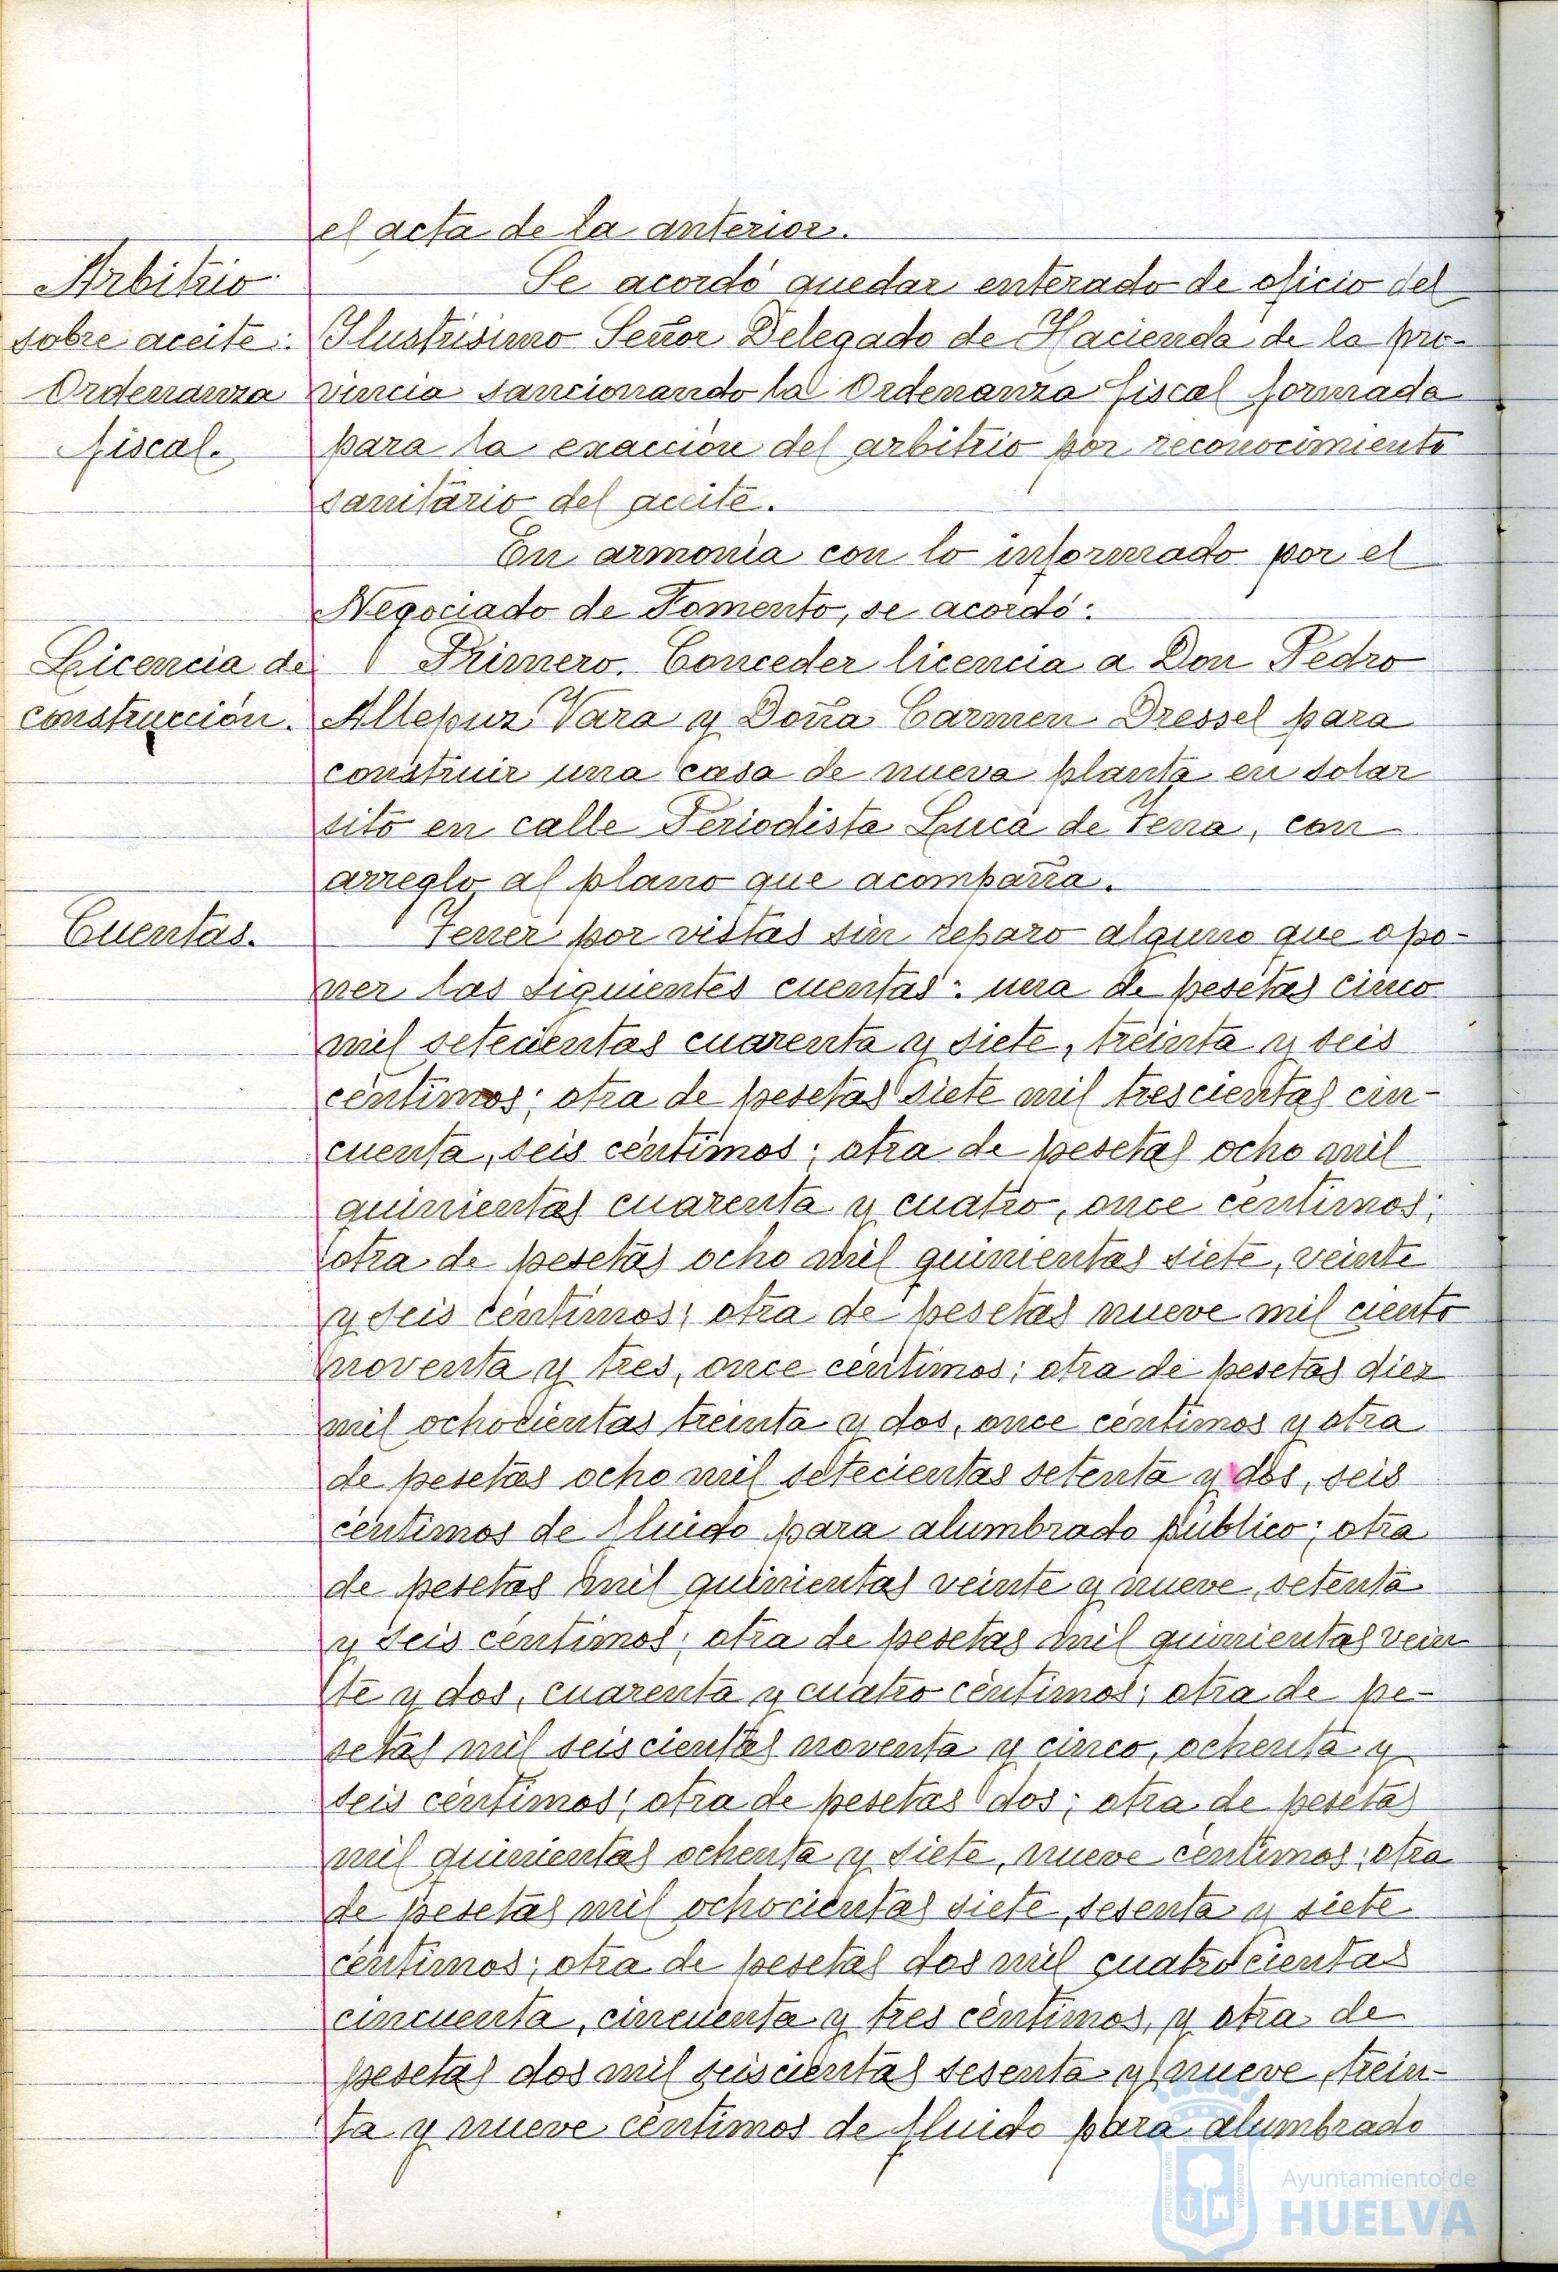 el acta de la anterior.
Arbitrio
sobre aceite:
Ordenanza
fiscal.
Se acordó quedar enterado de oficio del
Ilustrísimo Señor Delegado de Hacienda de la pro-
vincia sancionando la Ordenanza fiscal formada
para la exacción del arbitrio por reconocimiento
sanitario del aceite.
En armonía con lo informado por el
Negociado de Fomento, se acordó:
Licencia de
construcción.
Primero. Conceder licencia a Don Pedro
Altepuz Vara y Doña Carmen Dressel para
construir una casa de nueva planta en solar
sito en calle Periodista Luca de Tena, con
arreglo al plano que acompaña.
Cuentas.
Tener por vistas sin reparo alguno que opo-
ner las siguientes cuentas: una de pesetas cinco
mil setecientas cuarenta y siete, treinta y seis
céntimos; otra de pesetas siete mil trescientas cin-
cuenta, seis céntimos; otra de pesetas ocho mil
quinientas cuarenta y cuatro, once céntimos;
otra de pesetas ocho mil quinientas siete, veinte
y seis céntimos; otra de pesetas nueve mil ciento
noventa y tres, once céntimos; otra de pesetas diez
mil ochocientas treinta y dos, once céntimos y otra
de pesetas ocho mil setecientas setenta y dos, seis
céntimos de fluido para alumbrado público; otra
de pesetas mil quinientas veinte y nueve, setenta
y seis céntimos; otra de pesetas mil quinientas vein
te y dos, cuarenta y cuatro céntimos; otra de pe-
setas mil seiscientas noventa y cinco, ochenta y
seis céntimos; otra de pesetas dos; otra de pesetas
mil quinientas ochenta y siete, nueve céntimos; otra
de pesetas mil ochocientas siete, sesenta y siete
céntimos; otra de pesetas dos mil cuatrocientas
cincuenta, cincuenta y tres céntimos, y otra de
pesetas dos mil seiscientas sesenta y nueve, trein-
ta y nueve céntimos de fluido para alumbrado
PORTUS MARIS
CUSTODIA
Ayuntamiento de
HUELVA